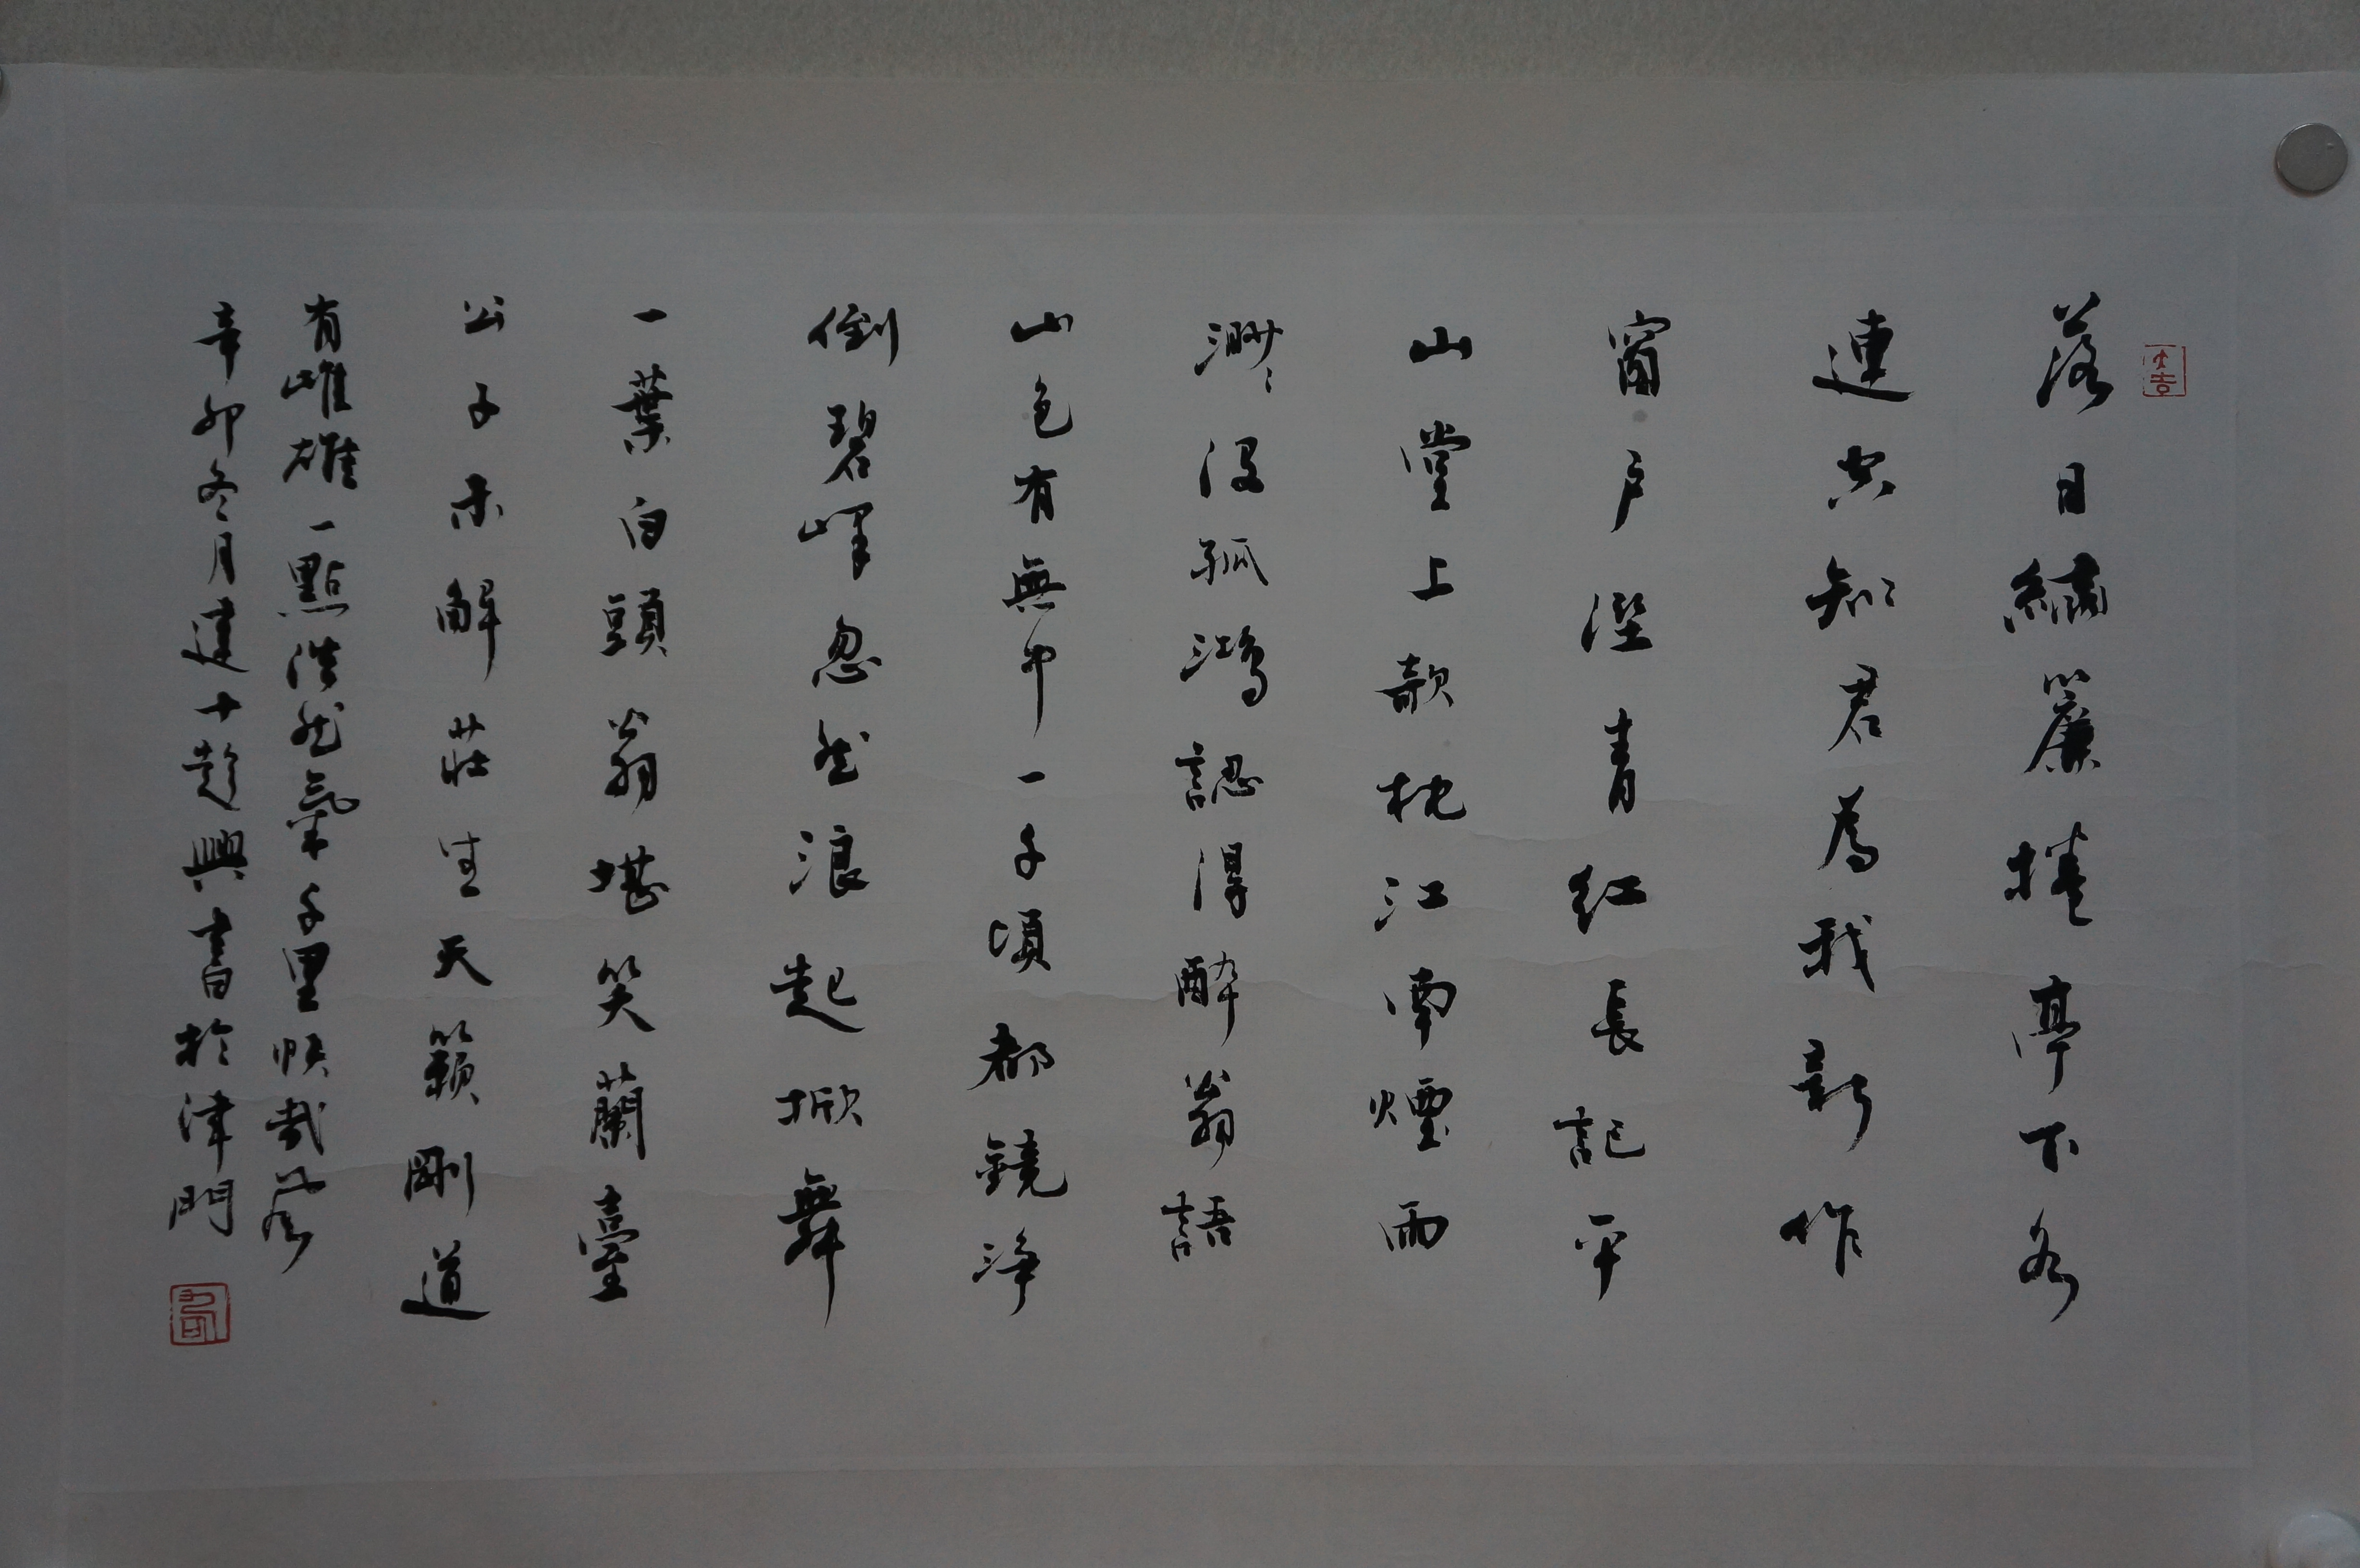 大吉
落日繡簾捲亭下水
連空知君為我新作
窗戶溼青紅長記平
山堂上欹枕江南煙雨
渺〻沒孤鴻認得醉翁語
山色有無中一千頃都鏡淨
倒碧峰忽然浪起掀舞
一葉白頭翁堪笑蘭臺
公子未解莊生天籟剛道
有雌雄一點浩然氣千里快哉風
辛卯冬月建十趁興書於津門